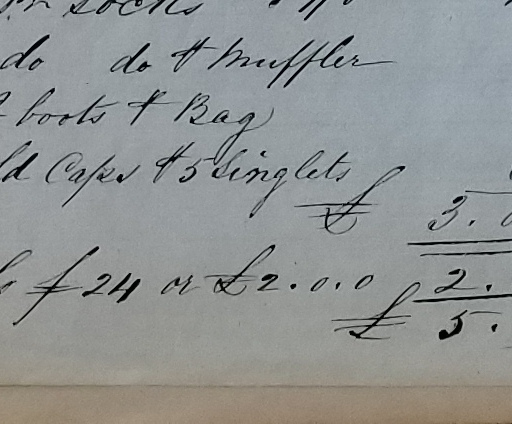 socks
do do & muffler
boots & Bag
ld Caps & 5 Singlets
£ 3.
f 24 or £2.0.0 2.
£ 5.